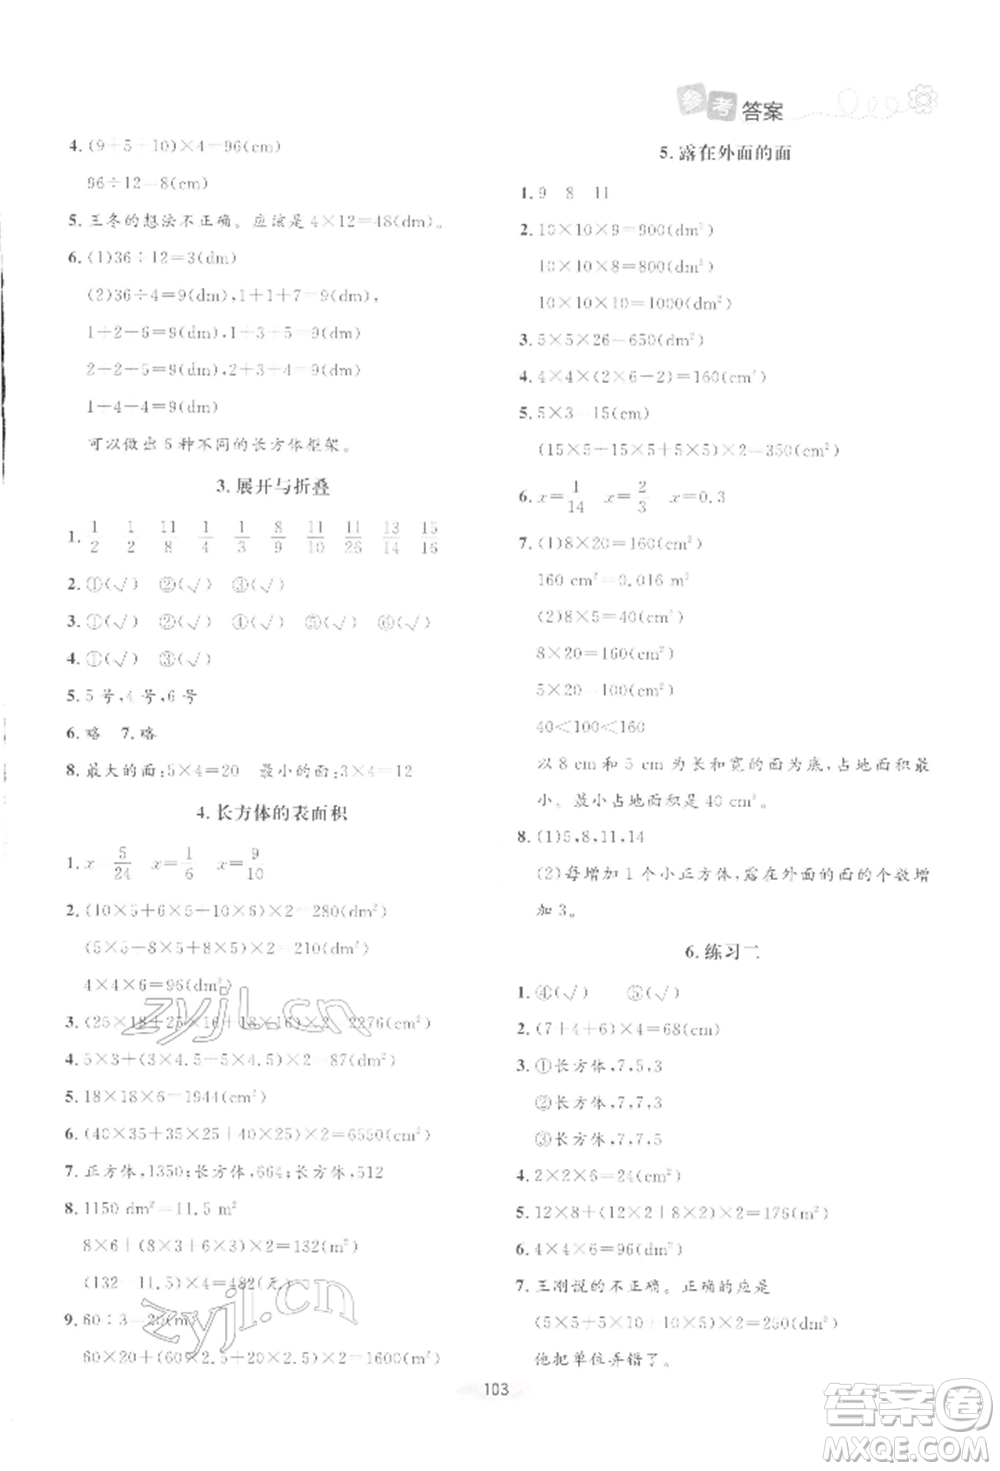 参考答案
4. (9+5+10)×4=96(cm)
96÷12=8(cm)
5. 王冬的想法不正确。应该是 4×12=48(dm)。
6. (1)36÷12=3(dm)
(2)36÷4=9(dm),1+1+7=9(dm),
1+2+6=9(dm),1+3+5=9(dm)
2+2+5=9(dm),2+3+4=9(dm)
1+4+4=9(dm)
可以做出 6 种不同的长方体框架。
3. 展开与折叠
1. 1/2 1/2 11/8 1/4 1/3 8/9 11/10 11/26 13/14 15/16
2. ①(√) ②(√) ③(√)
3. ①(√) ②(√) ④(√) ⑤(√) ⑥(√)
4. ①(√) ③(√)
5. 5 号,4 号,6 号
6. 略 7. 略
8. 最大的面:5×4=20 最小的面:3×4=12
4. 长方体的表面积
1. x=5/24 x=1/6 x=9/10
2. (10×5+6×5+10×6)×2=280(dm²)
(5×5+8×5+8×5)×2=210(dm²)
4×4×6=96(dm²)
3. (25×18+25×16+18×16)×2=2276(cm²)
4. 5×3+(3×4.5+5×4.5)×2=87(dm²)
5. 18×18×6=1944(cm²)
6. (40×35+35×25+40×25)×2=6550(cm²)
7. 正方体,1350;长方体,664;长方体,512
8. 1150 dm²=11.5 m²
8×6+(8×3+6×3)×2=132(m²)
(132-11.5)×4=482(元)
9. 60÷3=20(cm)
60×20+(60×2.5+20×2.5)×2=1600(cm²)
5. 露在外面的面
1. 9 8 11
2. 10×10×9=900(dm²)
10×10×8=800(dm²)
10×10×10=1000(dm²)
3. 5×5×26=650(dm²)
4. 4×4×(2×6-2)=160(cm²)
5. 5×3=15(cm)
(15×5+15×5+5×5)×2=350(cm²)
6. x=1/14 x=2/3 x=0.3
7. (1)8×20=160(cm²)
160 cm²=0.016 m²
(2)8×5=40(cm²)
8×20=160(cm²)
5×20=100(cm²)
40<100<160
以 8 cm 和 5 cm 为长和宽的面为底,占地面积最
小。最小占地面积是 40 cm²。
8. (1)5,8,11,14
(2)每增加 1 个小正方体,露在外面的面的个数增
加 3。
6. 练习二
1. ④(√) ⑤(√)
2. (7+4+6)×4=68(cm)
3. ①长方体,7,5,3
②长方体,7,7,3
③长方体,5,5,3
4. 2×2×6=24(cm²)
5. 12×8+(12×2+8×2)×2=176(m²)
6. 4×4×6=96(dm²)
7. 王刚说的不正确。正确的应是
(5×5+5×8+5×8)×2=210(dm²)
他把单位弄错了。
103
zyjl.cn
zyjl.cn
答案圈
MXQE.COM